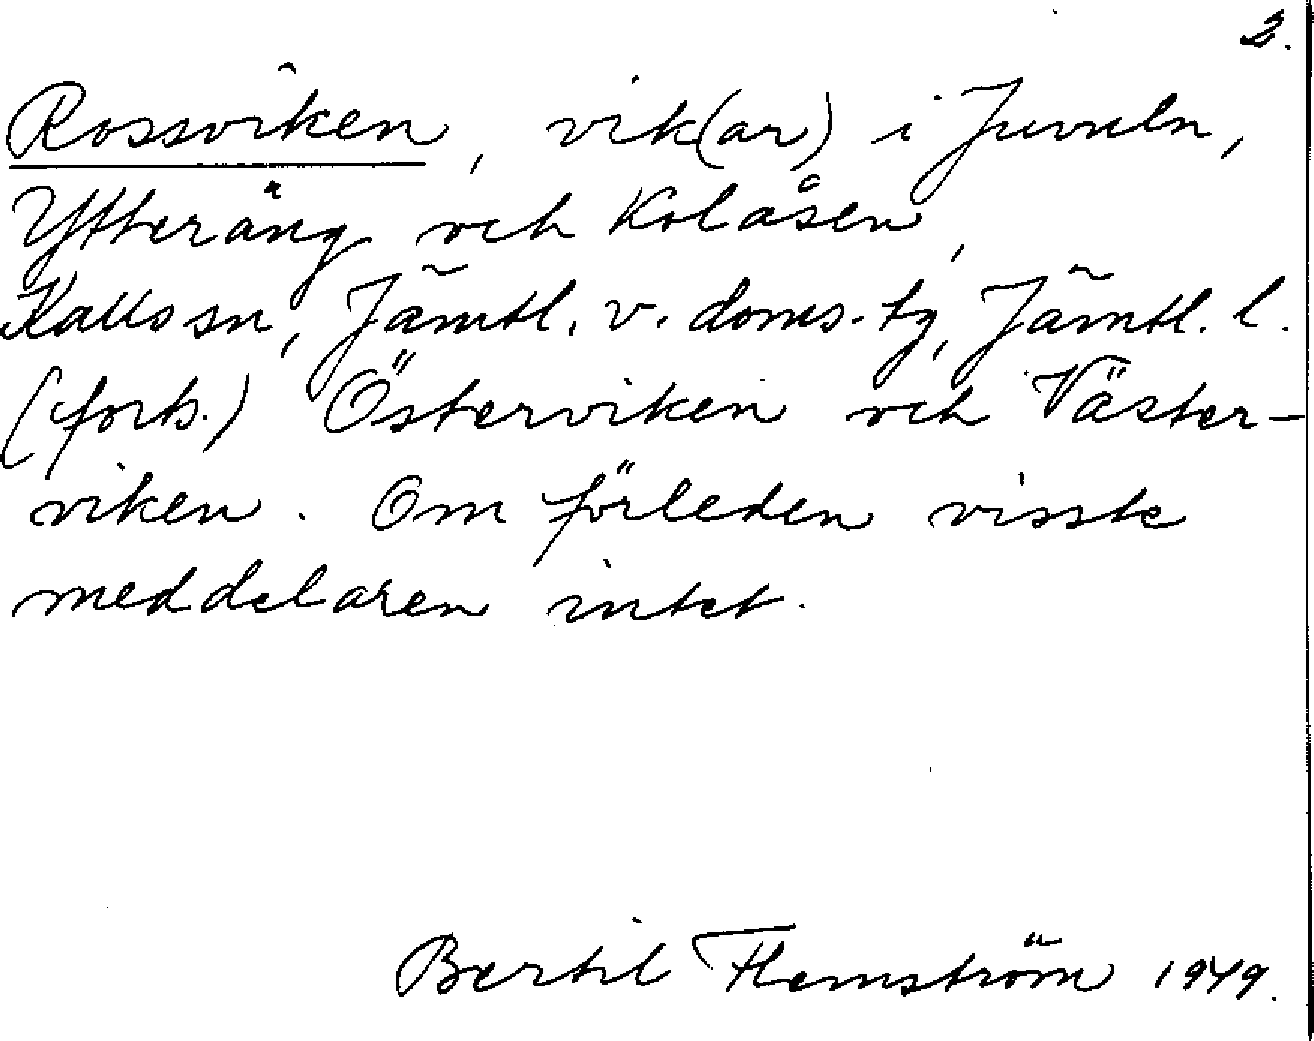 2.
Rossviken, vik(ar) i Juvuln,
Ytteräng och Kolåsen,
Kalls sn, Jämtl. v. doms. tg, Jämtl. l.
(forts.) Österviken och Väster-
viken. Om förleden visste
meddelaren intet.
Bertil Flemström 1949.